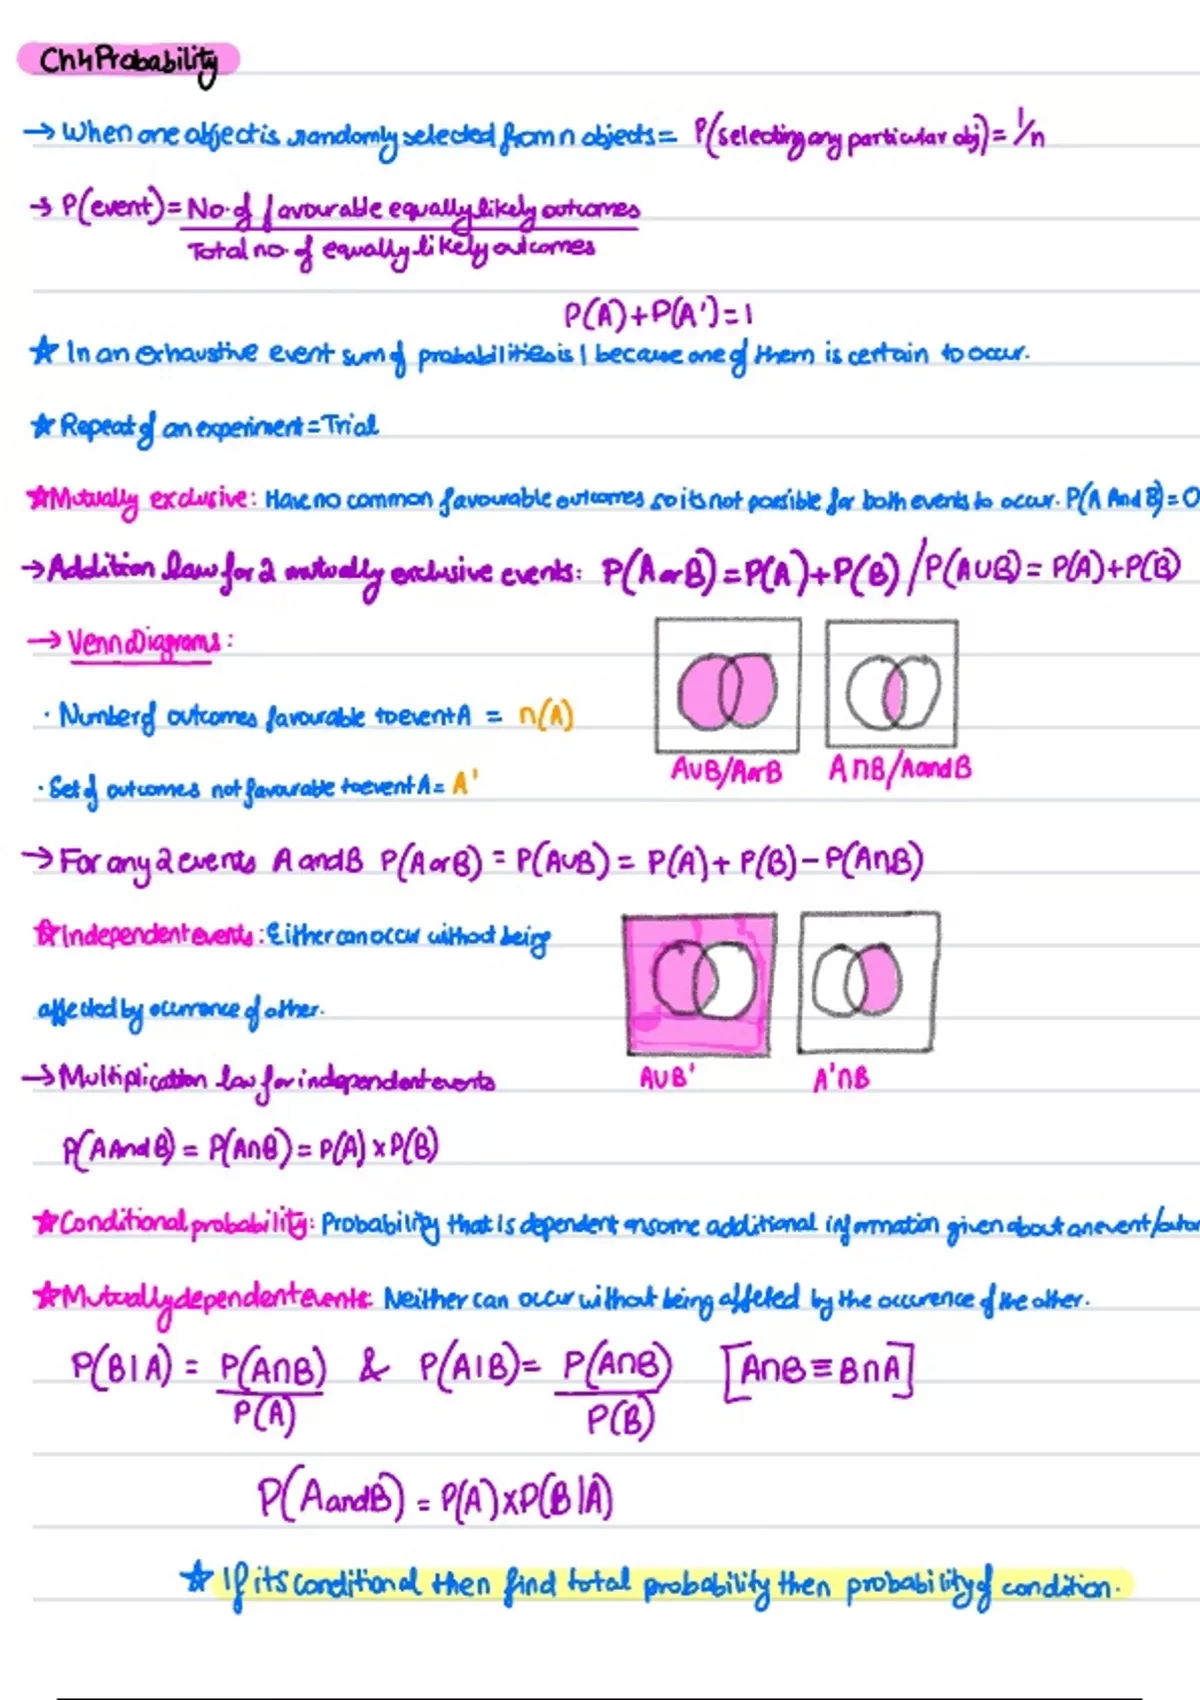 Ch4 Probability
→ When one object is randomly selected from n objects = P(selecting any particular obj) = 1/n
→ P(event) = No. of favourable equally likely outcomes
Total no. of equally likely outcomes
P(A) + P(A') = 1
☆ In an exhaustive event sum of probabilities is 1 because one of them is certain to occur.
☆ Repeat of an experiment = Trial
☆ Mutually exclusive: Have no common favourable outcomes so its not possible for both events to occur. P(A And B) = 0
→ Addition law for 2 mutually exclusive events: P(A or B) = P(A) + P(B) / P(A∪B) = P(A) + P(B)
→ Venn Diagrams:
· Number of outcomes favourable to event A = n(A)
A∪B/A or B A∩B/A and B
· Set of outcomes not favourable to event A = A'
→ For any 2 events A and B P(A or B) = P(A∪B) = P(A) + P(B) − P(A∩B)
☆ Independent events: Either can occur without being
affected by ocurrence of other.
→ Multiplication law for independent events
A∪B' A'∩B
P(A And B) = P(A∩B) = P(A) × P(B)
☆ Conditional probability: Probability that is dependent on some additional information given about an event/
☆ Mutually dependent events: Neither can occur without being affeted by the occurence of the other.
P(B|A) = P(A∩B) & P(A|B) = P(A∩B) [A∩B ≡ B∩A]
P(A) P(B)
P(A and B) = P(A) × P(B|A)
☆ If its conditional then find total probability then probability of condition.